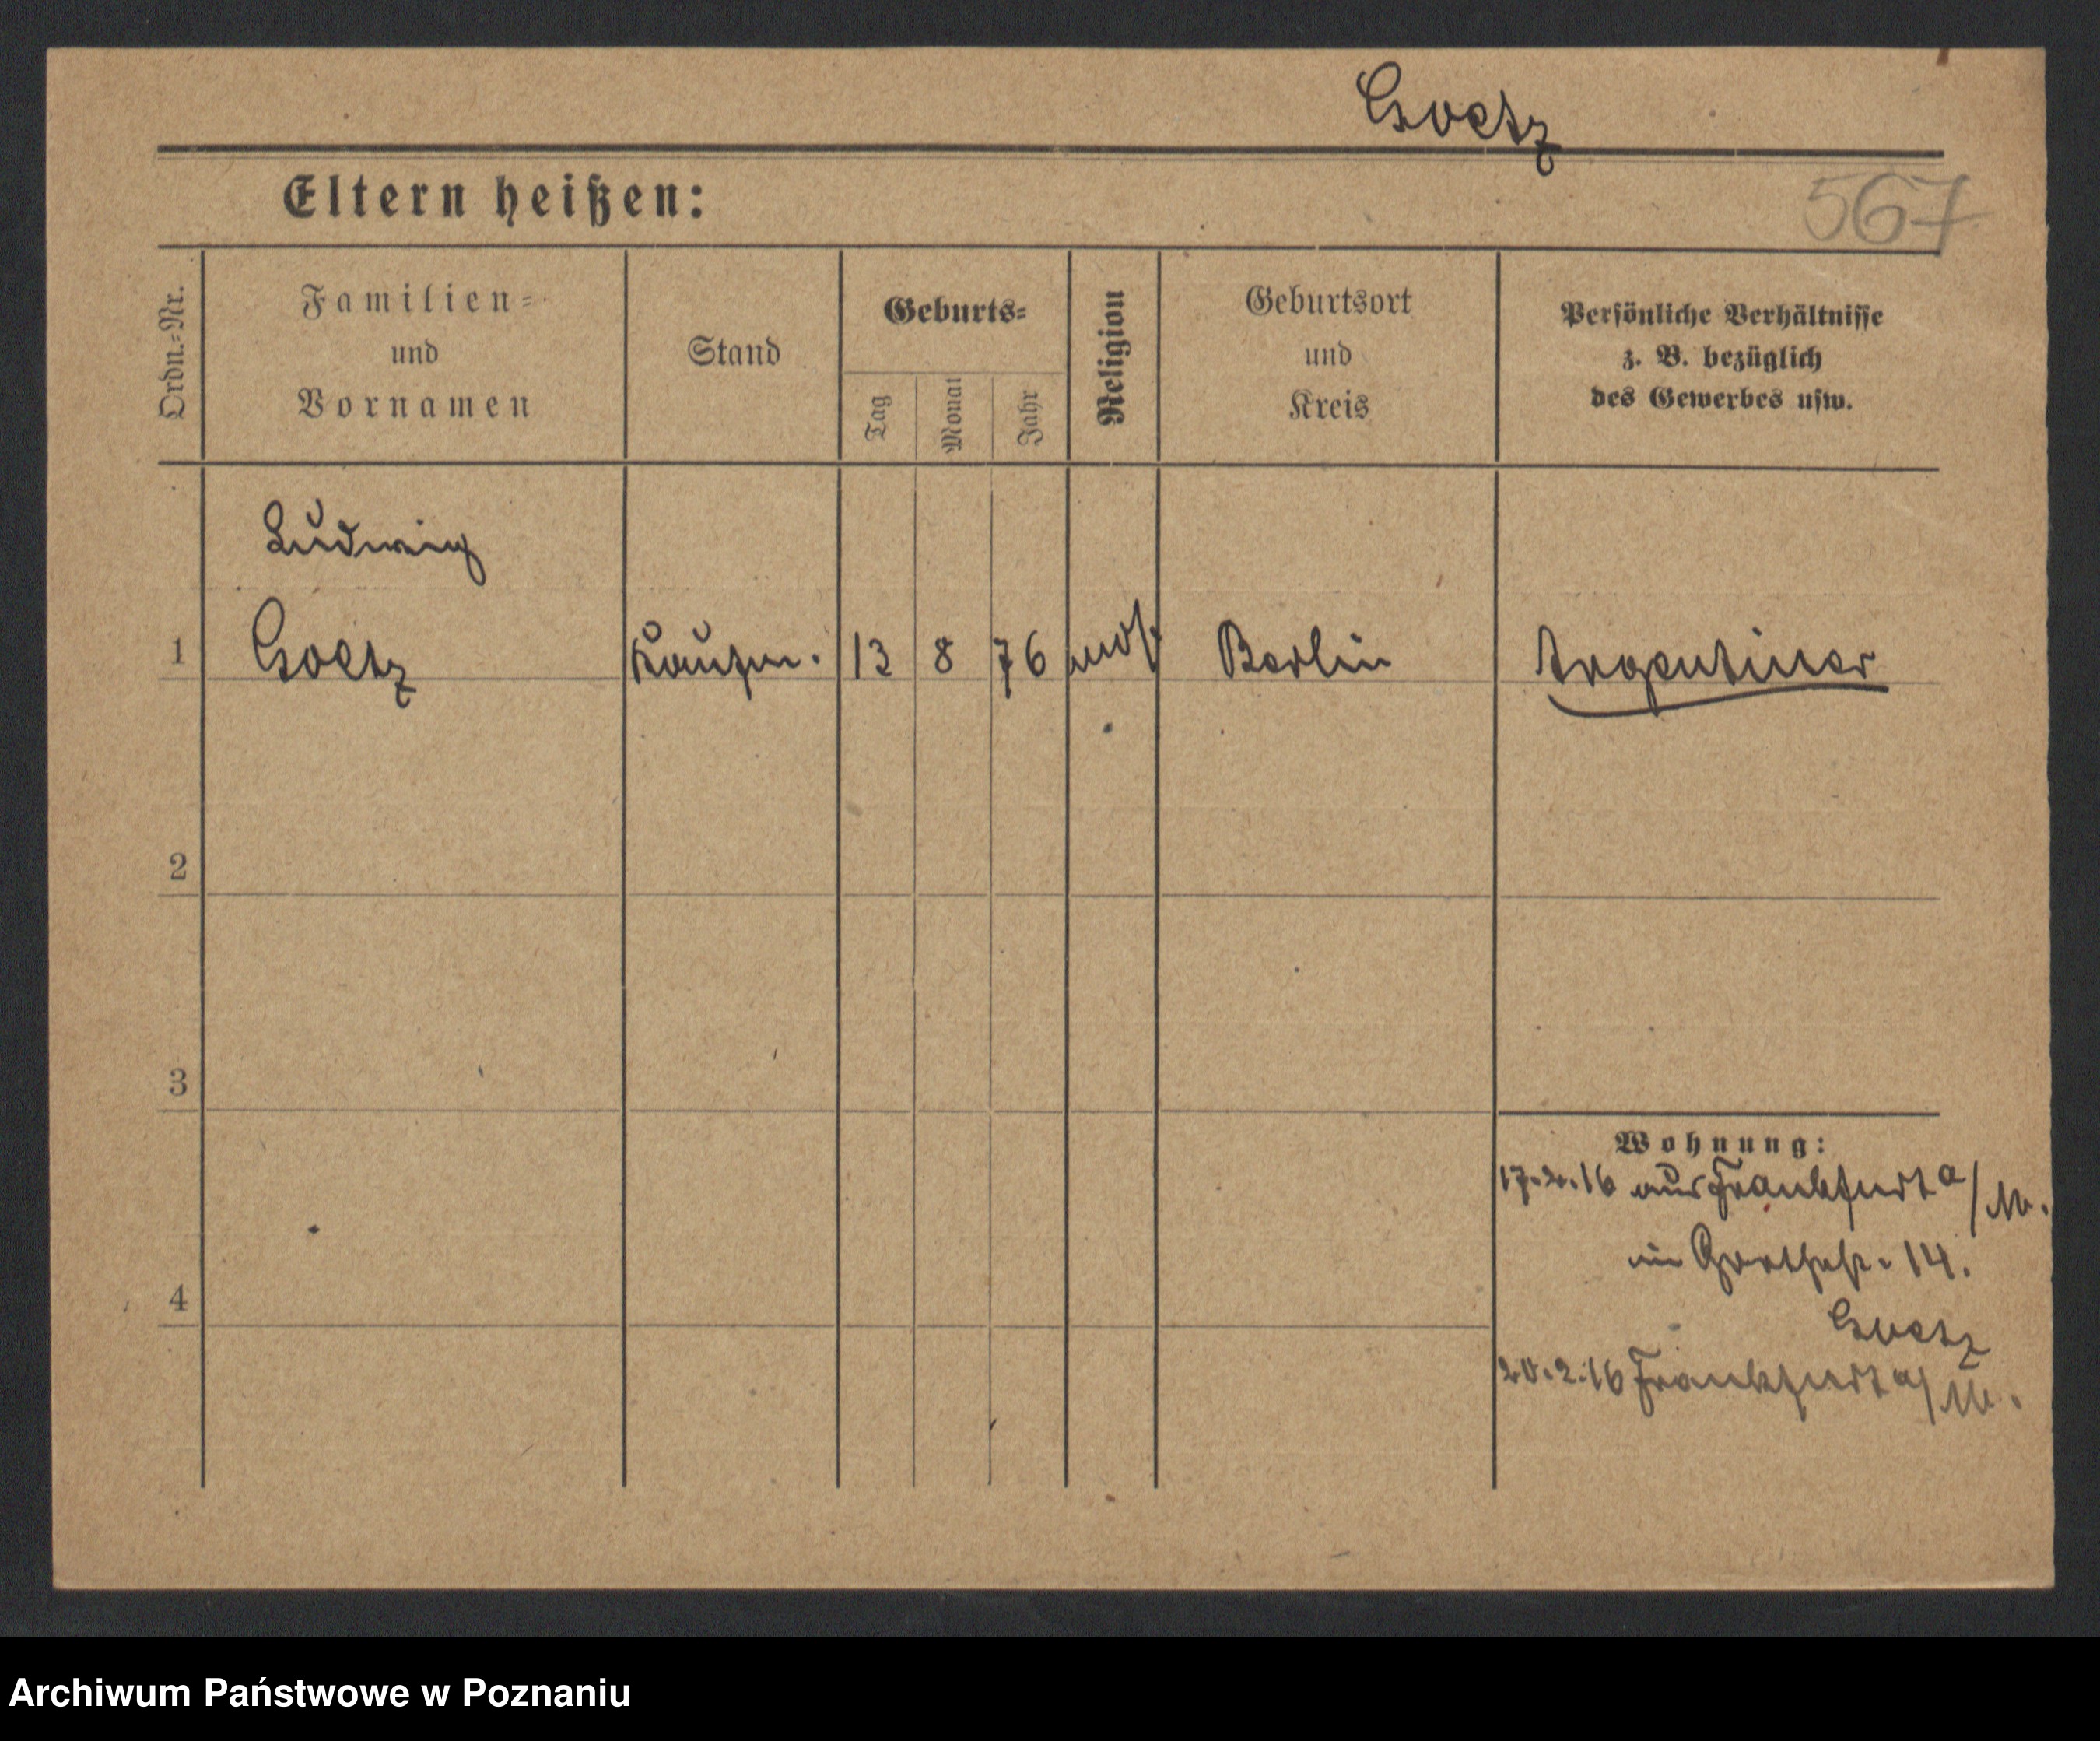 Goetz
Eltern heißen:
567
Ordn.-Nr.
Familien-
und
Vornamen
Stand
Geburts-
Tag
Monat
Jahr
Religion
Geburtsort
und
Kreis
Persönliche Verhältnisse
z. B. bezüglich
des Gewerbes usw.
Ludwig
1 Goetz Kaufm. 13 8 76 mos. Berlin Argentiner
2
3
Wohnung:
17.2.16 aus Frankfurt a/M.
in Goethestr. 14.
4
Goetz
20.2.16 Frankfurt a/M.
Archiwum Państwowe w Poznaniu